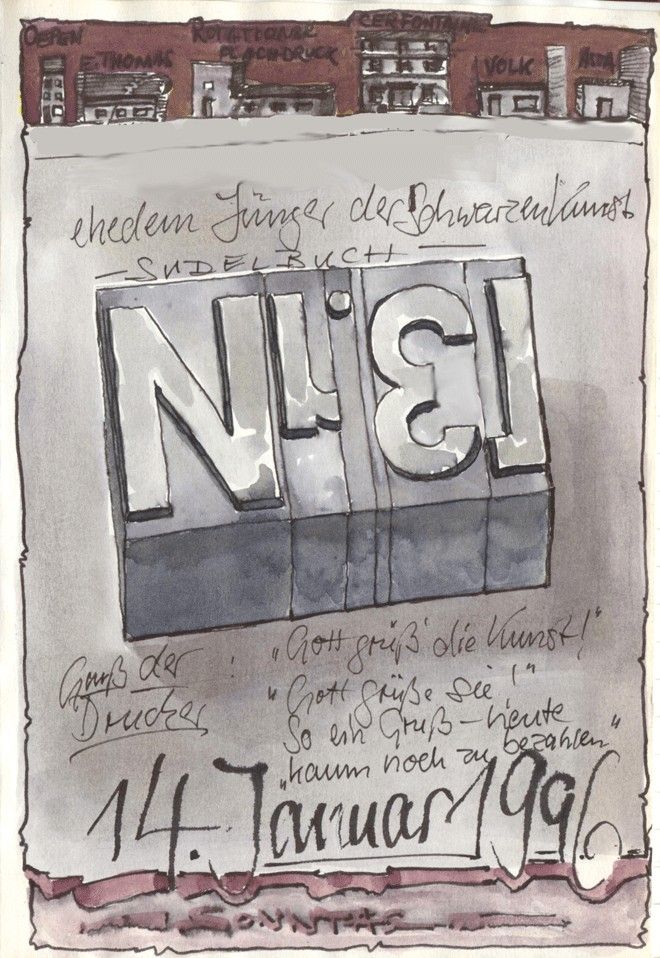 OEPEN
E. THOMAS
FLACHDRUCK
CERFONTAINE
VOLK
ehedem Jünger der Schwarzen Kunst
- SUDELBUCH
Nr. 31
Gruß der Drucker : "Gott grüß' die Kunst!"
"Gott grüße sie!"
So ein Gruß - heute
"kaum noch zu bezahlen"
14. Januar 1996
SONNTAG